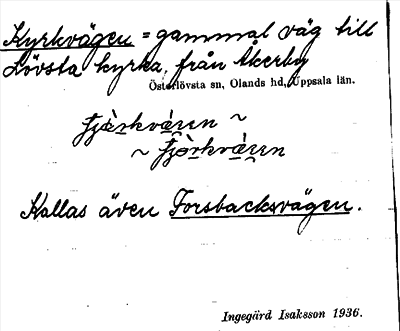 Kyrkvägen = gammal väg till
Lövsta kyrka, från Åkerby
Österlövsta sn, Olands hd, Uppsala län.
~
~
Kallas även Forsbacksvägen.
Ingegärd Isaksson 1936.